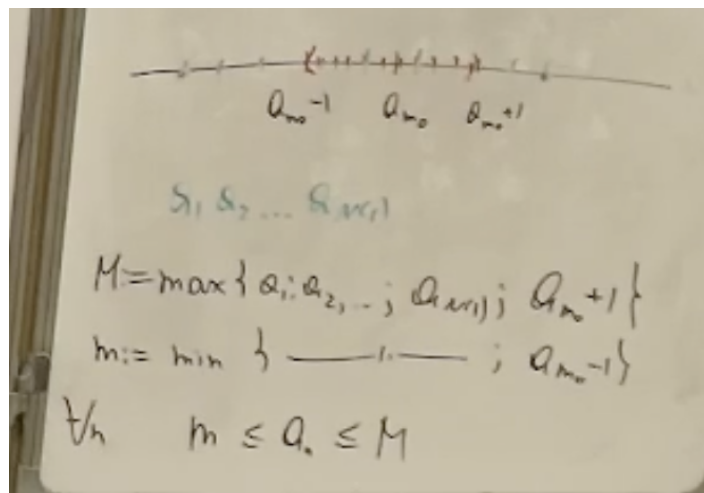 a_{m₀}-1 a_{m₀} a_{m₀}+1
a₁ a₂ ... a_{N(1)}
M:=max{a₁; a₂, ..; a_{N(1)}; a_{m₀}+1}
m:= min { —〃— ; a_{m₀}-1}
∀n m ≤ a. ≤ M